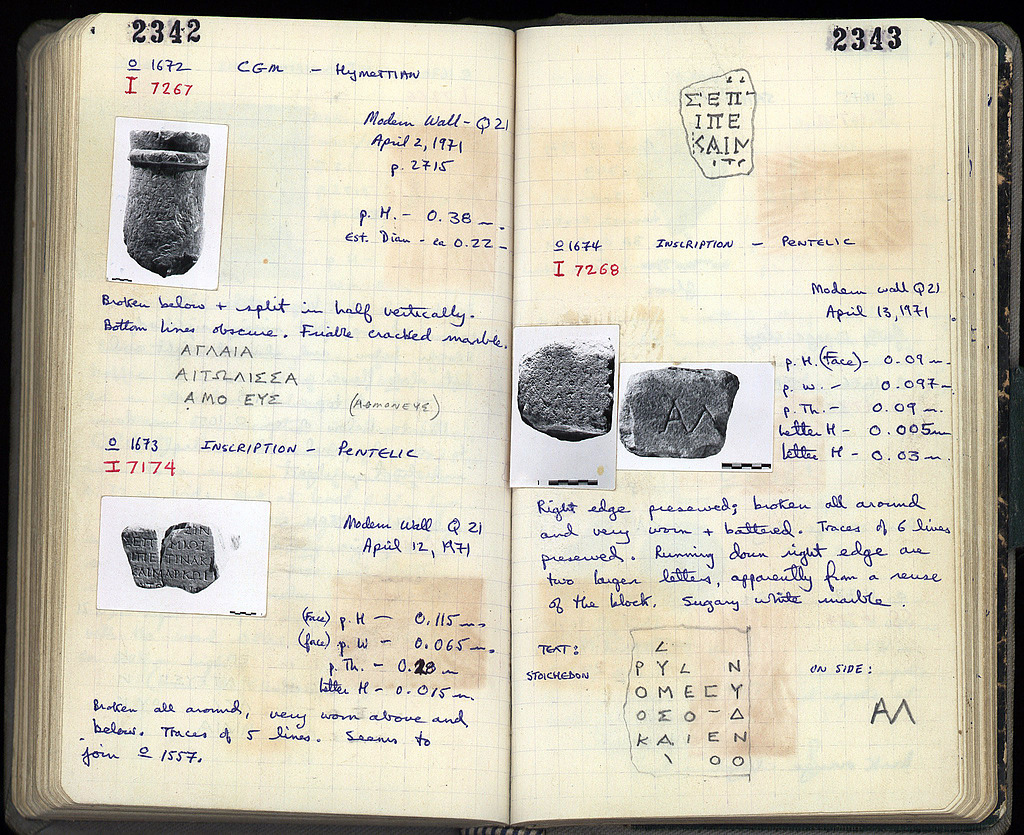 2342
O 1672 CGM – HYMETTIAN
I 7267
Modern Wall – Q 21
April 2, 1971
p. 2715
p. H. – 0.38 m.
Est. Diam – ca 0.22
Broken below + split in half vertically.
Bottom lines obscure. Friable cracked marble.
ΑΓΛΑΙΑ
ΑΙΤΩΛΙΣΣΑ
ΑΜΟ ΕΥΣ (ΑΘΜΟΝΕΥΣ)
O 1673 INSCRIPTION – PENTELIC
I 7174
Modern Wall Q 21
April 12, 1971
(Face) p. H – 0.115 m.
(face) p. W – 0.065 m.
p. Th. – 0.28 m
letter H – 0.015 m.
Broken all around, very worn above and
below. Traces of 5 lines. Seems to
join O 1557.
2343
ΣΕΠΤ
ΙΠΕ
ΚΑΙΝ
O 1674 INSCRIPTION – PENTELIC
I 7268
Modern wall Q 21
April 13, 1971
p. H. (Face) – 0.09 m.
p. W. – 0.097 m
p. Th. – 0.09 m.
letter H – 0.005 m
letter H – 0.03 m.
ΑΛ
Right edge preserved; broken all around
and very worn + battered. Traces of 6 lines
preserved. Running down right edge are
two larger letters, apparently from a reuse
of the block. Sugary white marble.
TEXT:
STOICHEDON
ΡΥΛ Ν
ΟΜΕΓΥ
ΟΣΟ–Δ
ΚΑΙΕΝ
Ι ΟΟ
ON SIDE:
ΑΛ